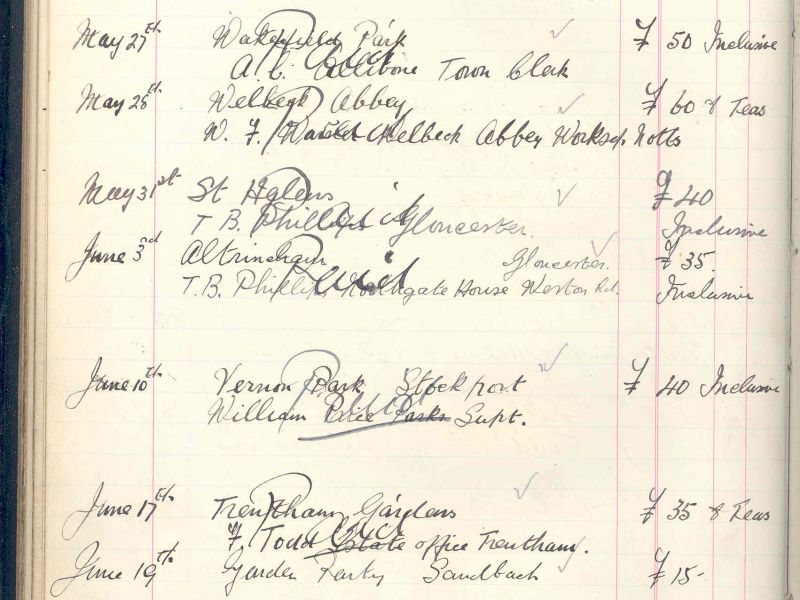 May 27th Wakefield Park £ 50 Inclusive
A. L. Allibone Town Clerk
May 28th Welbeck Abbey £ 60 & Teas
W. F. Welbeck Abbey Worksop Notts
May 31st St Helens £ 40
T B. Phillips Gloucester. Inclusive
June 3rd Altrincham Gloucester. £ 35.
T.B. Phillips Northgate House Weston Rd. Inclusive
June 10th Vernon Park Stockport £ 40 Inclusive
William Price Parks Supt.
June 17th Trentham Gardens £ 35 & Teas
F. Todd Estate office Trentham.
June 19th Garden Party Sandbach £ 15-